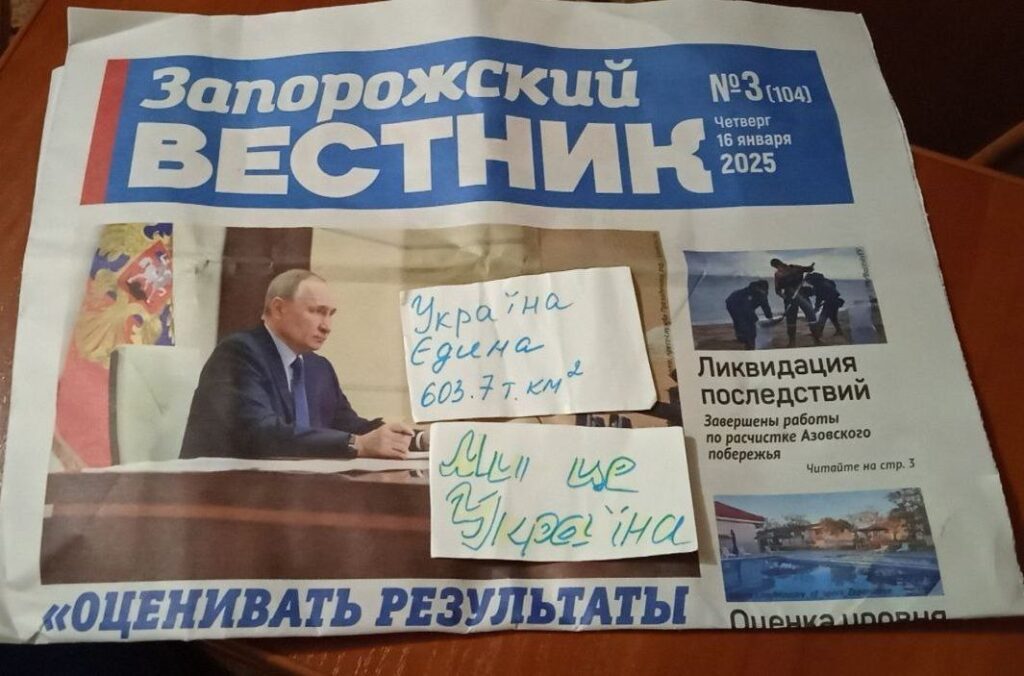 Запорожский
ВЕСТНИК
№3 (104)
Четверг
16 января
2025
Україна
Єдина
603.7 т. км²
Ми це
Україна
Ликвидация
последствий
Завершены работы
по расчистке Азовского
побережья
Читайте на стр. 3
«ОЦЕНИВАТЬ РЕЗУЛЬТАТЫ
Оценка уровня